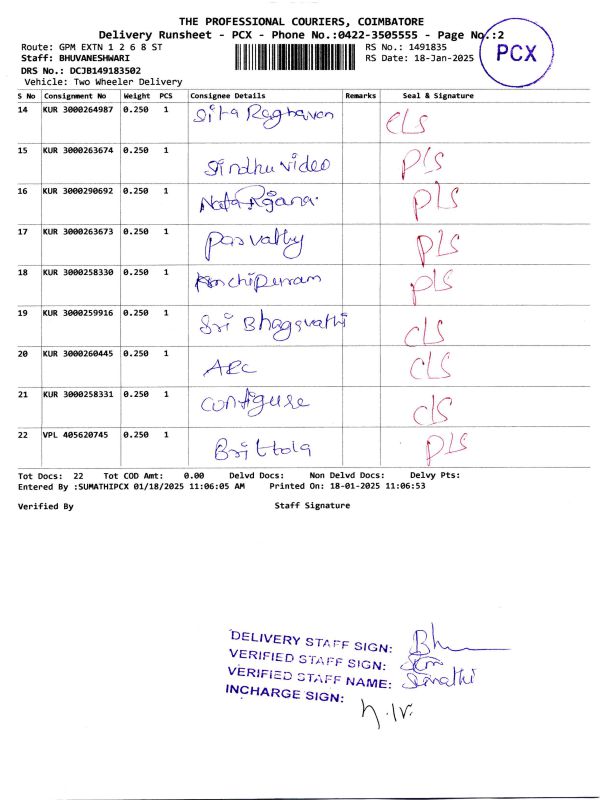 THE PROFESSIONAL COURIERS, COIMBATORE
Delivery Runsheet - PCX - Phone No.:0422-3505555 - Page No.:2
Route: GPM EXTN 1 2 6 8 ST RS No.: 1491835
Staff: BHUVANESHWARI RS Date: 18-Jan-2025
PCX
DRS No.: DCJB149183502
Vehicle: Two Wheeler Delivery
S No Consignment No Weight PCS Consignee Details Remarks Seal & Signature
14 KUR 3000264987 0.250 1 Sita Raghavan CLS
15 KUR 3000263674 0.250 1 Sindhu video PLS
16 KUR 3000290692 0.250 1 PLS
17 KUR 3000263673 0.250 1 Parvathy PLS
18 KUR 3000258330 0.250 1 PLS
19 KUR 3000259916 0.250 1 Sri Bhagavathi CLS
20 KUR 3000260445 0.250 1 CLS
21 KUR 3000258331 0.250 1 Configure CLS
22 VPL 405620745 0.250 1 PLS
Tot Docs: 22 Tot COD Amt: 0.00 Delvd Docs: Non Delvd Docs: Delvy Pts:
Entered By :SUMATHIPCX 01/18/2025 11:06:05 AM Printed On: 18-01-2025 11:06:53
Verified By Staff Signature
DELIVERY STAFF SIGN:
VERIFIED STAFF SIGN:
VERIFIED STAFF NAME: Sumathi
INCHARGE SIGN: